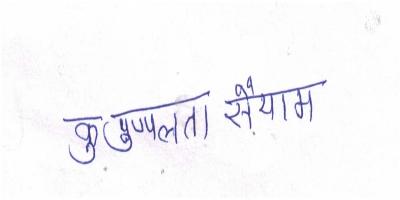 कु पुष्पलता सैयाम